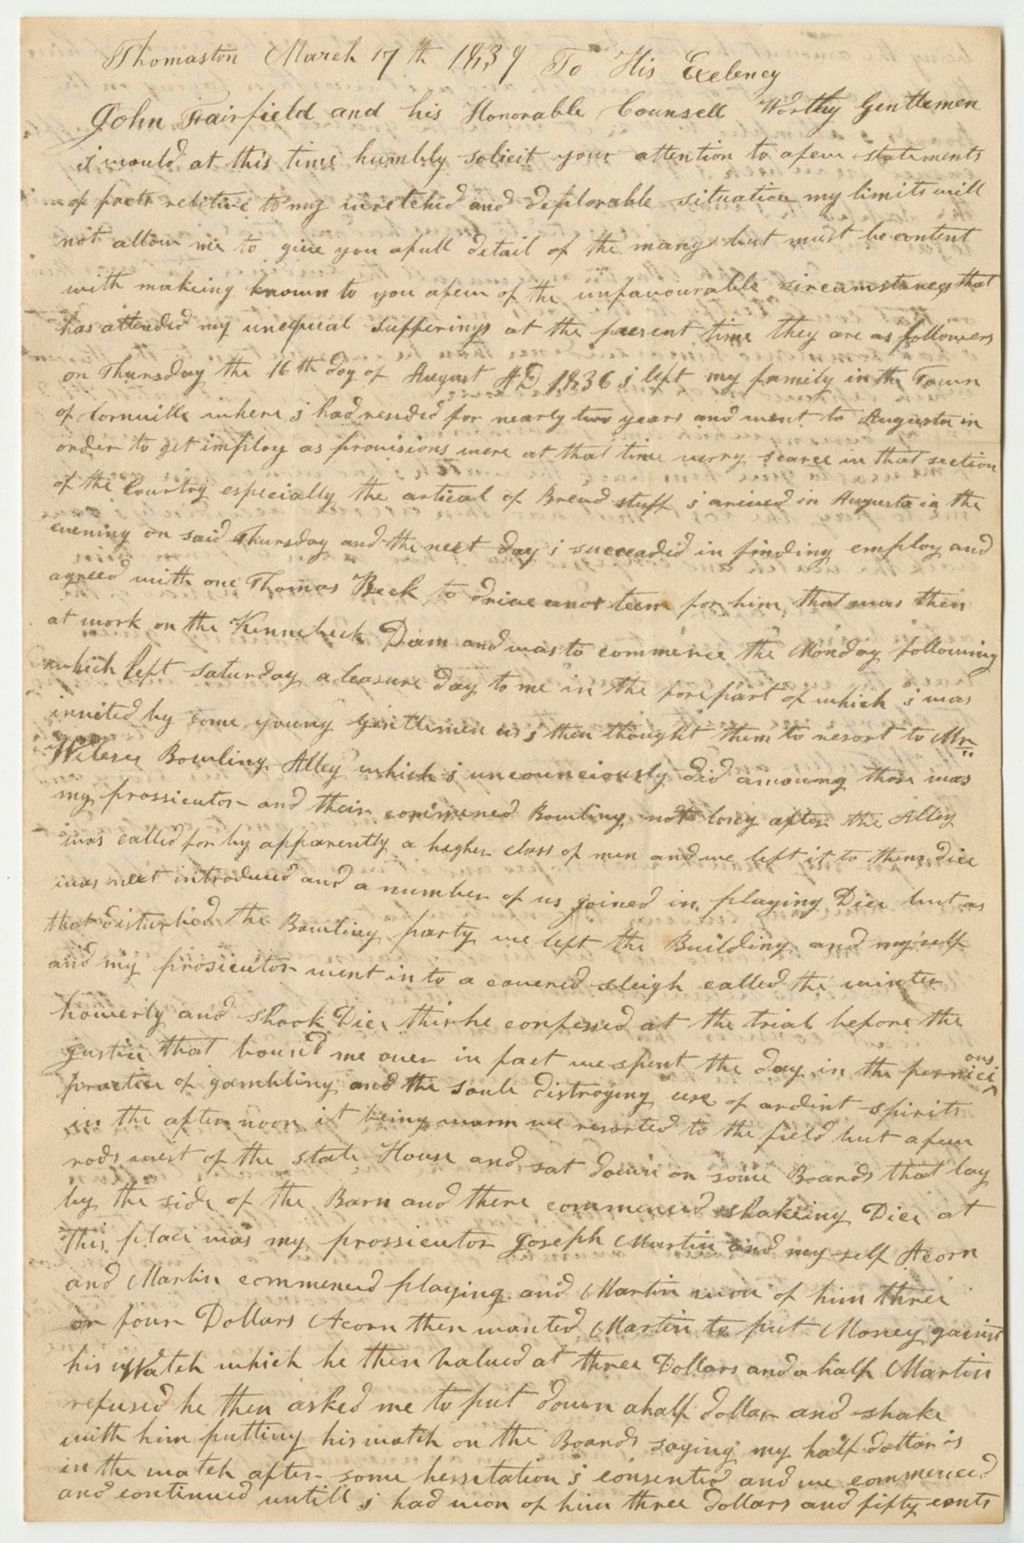 Thomaston March 17th 1839 To His Exelency
John Fairfield and his Honorable Counsell Worthy Gentlemen
i would at this time humbly solicit your attention to a few statements
of facts relitive to my wretched and deplorable situation my limits will
not allow me to give you a full detail of the many but must be content
with makeing known to you a few of the unfavourable circumstances that
has attended my unequal sufferings at the present time they are as followers
on Thursday the 16th day of August AD 1838 i left my family in the Town
of Cornville where i had resided for nearly two years and went to Augusta in
order to get imploy as provisions were at that time verry scarce in that section
of the Country especially the artical of Bread stuff i arived in Augusta in the
evening on said Thursday and the next day i succeadid in finding employ and
agreed with one Thomas Beck to drive an ox teem for him that was then
at work on the Kennebeck Dam and was to commence the Monday following
which left Saturday a leasure day to me in the forepart of which i was
invited by some young gentlemen as i then thought them to resort to Mr
Bowling Alley which i unconnciously did amoung those was
my prossicutor and their commened Bowling not long after the Alley
was called for by apparently a higher class of men and we left it to them Dice
was next introduced and a number of us joined in playing Dice but as
that disturbed the Bowling party we left the Building and myself
and my prosicutor went in to a covered sleigh called the winter
howerly and shook Dice this he confessed at the trial before the
justice that bound me over in fact we spent the day in the pernicious
practice of gambling and the soule distroying use of ardint spirits
in the after noon it being warm we resorted to the field but a few
rods west of the state House and sat down on some Boards that lay
by the side of the Barn and there commenced shakeing Dice at
this place was my prossicutor Joseph Martin and my self Acorn
and Martin commenced playing and Martin won of him three
or four Dollars Acorn then wanted Martin to put Money gainst
his Watch which he then valued at three Dollars and a half Martin
refused he then asked me to put down a half dollar and shake
with him putting his watch on the Boards saying my half dollar is
in the watch after some hessitation i consented and we commenced
and continued untill i had won of him three dollars and fifty cents